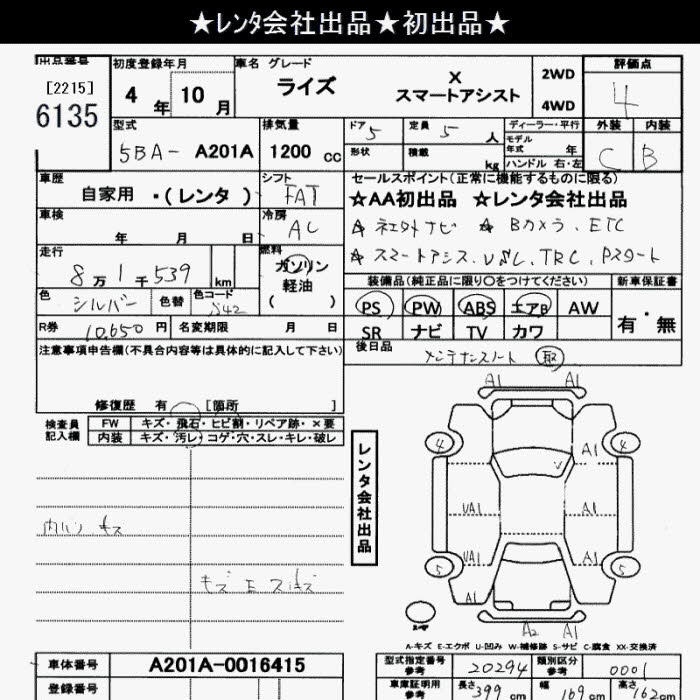 ★レンタ会社出品★初出品★
出品番号
[2215]
6135
初度登録年月
4 年 10 月
車名 グレード
ライズ
X
スマートアシスト
2WD
4WD
評価点
4
外装 内装
C B
型式
5BA- A201A
排気量
1200 cc
ドア 5
形状
定員 5 人
積載 kg
ディーラー・平行
モデル
年式 年
ハンドル 右・左
車歴
自家用 ・(レンタ)
シフト
FAT
車検
年 月 日
冷房
AC
走行
8万1千539 km
燃料
ガソリン
軽油
( )
色
シルバー
色替
色コード
S42
R券 10,650 円
名変期限 月 日
セールスポイント(正常に機能するものに限る)
☆AA初出品 ☆レンタ会社出品
Bカメラ、ETC
装備品(純正品に限り○をつけてください)
PS PW ABS エアB AW
SR ナビ TV カワ
新車保証書
有・無
後日品
メンテナンスノート 取
注意事項申告欄(不具合内容等は具体的に記入して下さい)
修復歴 有 [箇所 ]
検査員
記入欄
FW キズ・飛石・ヒビ割・リペア跡・×要
内装 キズ・汚レ・コゲ・穴・スレ・キレ・破レ
レンタ会社出品
A1 A1
4 4
A1
UA1 A1
UA1 A1
5 5
A1
A2 A1
A-キズ E-エクボ U-凹み W-補修跡 S-サビ C-腐食 XX-交換済
車体番号 A201A-0016415
登録番号
型式指定番号
参考
20294
類別区分
参考
0001
車庫証明用
参考
長さ 399 cm
幅 169 cm
高さ 162 cm